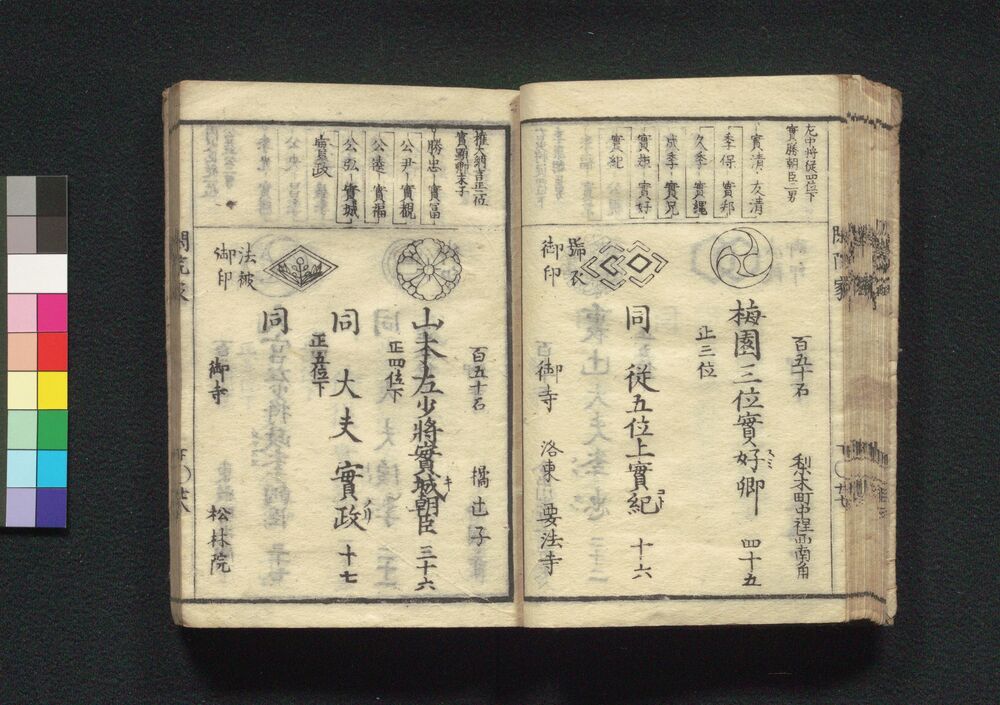 左中將從四位下
實勝朝臣二男
實清 友清
季保 實邦
久季 實縄
成季 實兄
實趣 實好
實紀
百五十石 梨木町中程西南角
梅園三位實好卿 四十五
正三位
同 從五位上實紀 十六
號衣
御印
御寺 洛東 要法寺
權大納言正二位
實顯卿末子
勝忠 實冨
公尹 實觀
公達 實福
公弘 實城
實政
百五十石 橘辻子
山本左少將實城朝臣 三十六
正四位下
同 大夫 實政 十七
正五位下
同
法被
御印
御寺 松林院